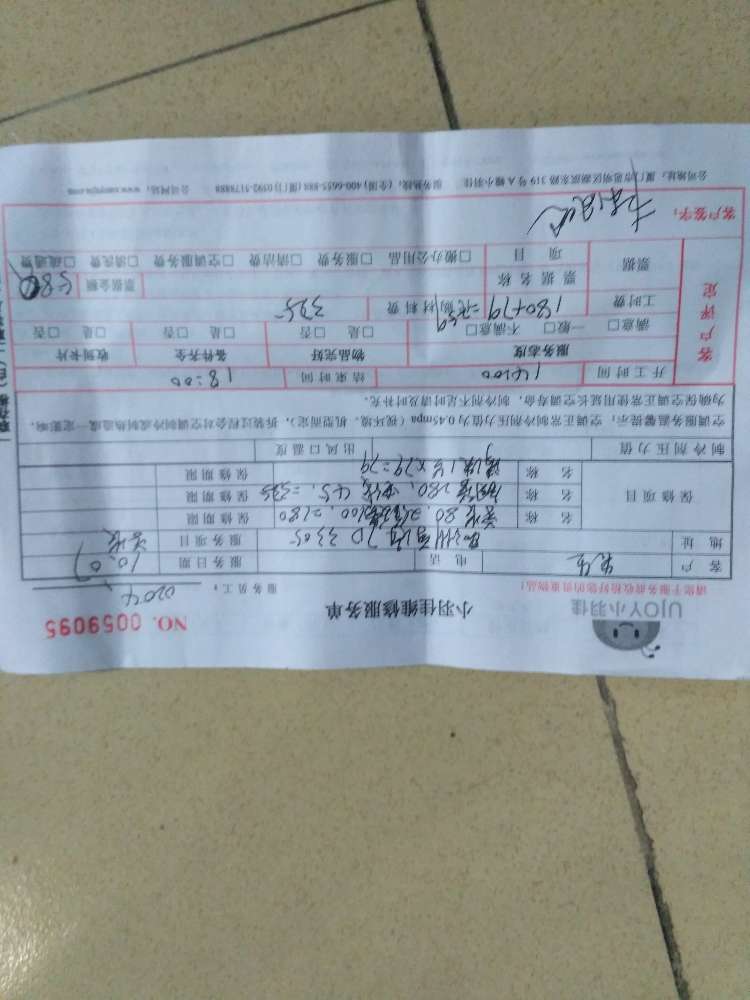 UJOY小羽佳
小羽佳维修服务单
NO. 0059095
请您于服务前收检好您的贵重物品!
服务员工: 0204
客户
电话
服务日期 10.07
地址 7D 3305
服务项目 安装
保修项目
名称 安装80, 100,=180
保修期限
名称 280, 45, =325
保修期限
名称 15×79=79
保修期限
制冷剂压力值
出风口温度
空调服务温馨提示:空调正常制冷剂压力值为0.45mpa(视环境、机型而定),拆装过程会对空调制冷或制热造成一定影响,
为确保空调正常使用延长空调寿命,制冷剂不足时请及时补充。
开工时间 14:00
结束时间 18:00
客户评定
服务态度
物品完好
备件齐全
收到卡片
满意□ 一般□ 不满意□
□是 □否
□是 □否
□是 □否
工时费 180+79=259
代购材料费 325
票据
票据名称
票据金额 580
项目
□搬办公用品 □服务费 □清洁费 □空调服务费 □清洗费 □疏通费
客户签字:
公司地址:厦门市思明区湖滨东路319号A幢小羽佳 服务热线:(全国)400-6655-888(厦门)0592-5178888 公司网站:www.xmyujia.com